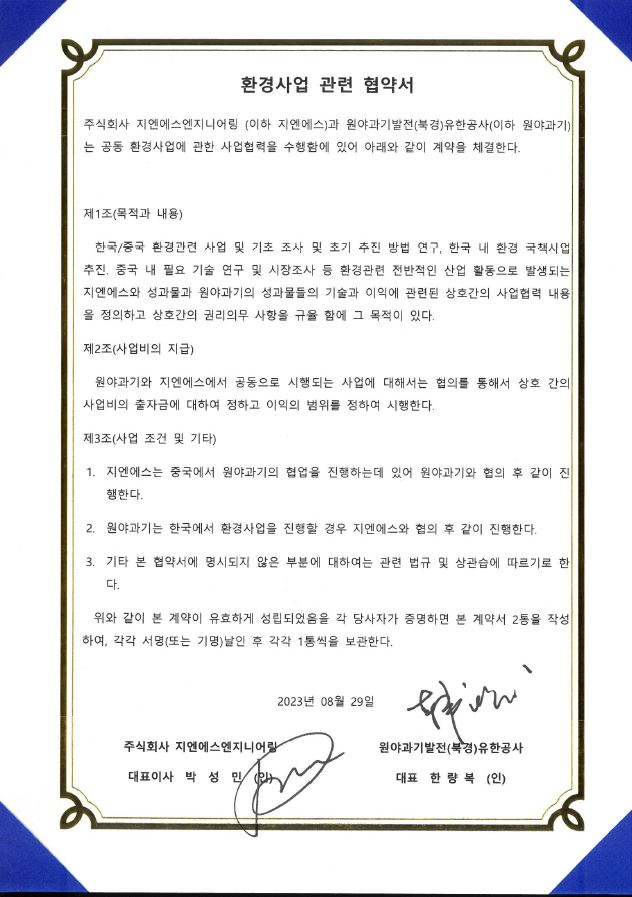 환경사업 관련 협약서
주식회사 지엔에스엔지니어링 (이하 지엔에스)과 원야과기발전(북경)유한공사(이하 원야과기)
는 공동 환경사업에 관한 사업협력을 수행함에 있어 아래와 같이 계약을 체결한다.
제1조(목적과 내용)
한국/중국 환경관련 사업 및 기초 조사 및 초기 추진 방법 연구, 한국 내 환경 국책사업
추진. 중국 내 필요 기술 연구 및 시장조사 등 환경관련 전반적인 산업 활동으로 발생되는
지엔에스와 성과물과 원야과기의 성과물들의 기술과 이익에 관련된 상호간의 사업협력 내용
을 정의하고 상호간의 권리의무 사항을 규율 함에 그 목적이 있다.
제2조(사업비의 지급)
원야과기와 지엔에스에서 공동으로 시행되는 사업에 대해서는 협의를 통해서 상호 간의
사업비의 출자금에 대하여 정하고 이익의 범위를 정하여 시행한다.
제3조(사업 조건 및 기타)
1. 지엔에스는 중국에서 원야과기의 협업을 진행하는데 있어 원야과기와 협의 후 같이 진
행한다.
2. 원야과기는 한국에서 환경사업을 진행할 경우 지엔에스와 협의 후 같이 진행한다.
3. 기타 본 협약서에 명시되지 않은 부분에 대하여는 관련 법규 및 상관습에 따르기로 한
다.
위와 같이 본 계약이 유효하게 성립되었음을 각 당사자가 증명하면 본 계약서 2통을 작성
하여, 각각 서명(또는 기명)날인 후 각각 1통씩을 보관한다.
2023년 08월 29일
주식회사 지엔에스엔지니어링 원야과기발전(북경)유한공사
대표이사 박 성 민 (인) 대표 한 량 복 (인)